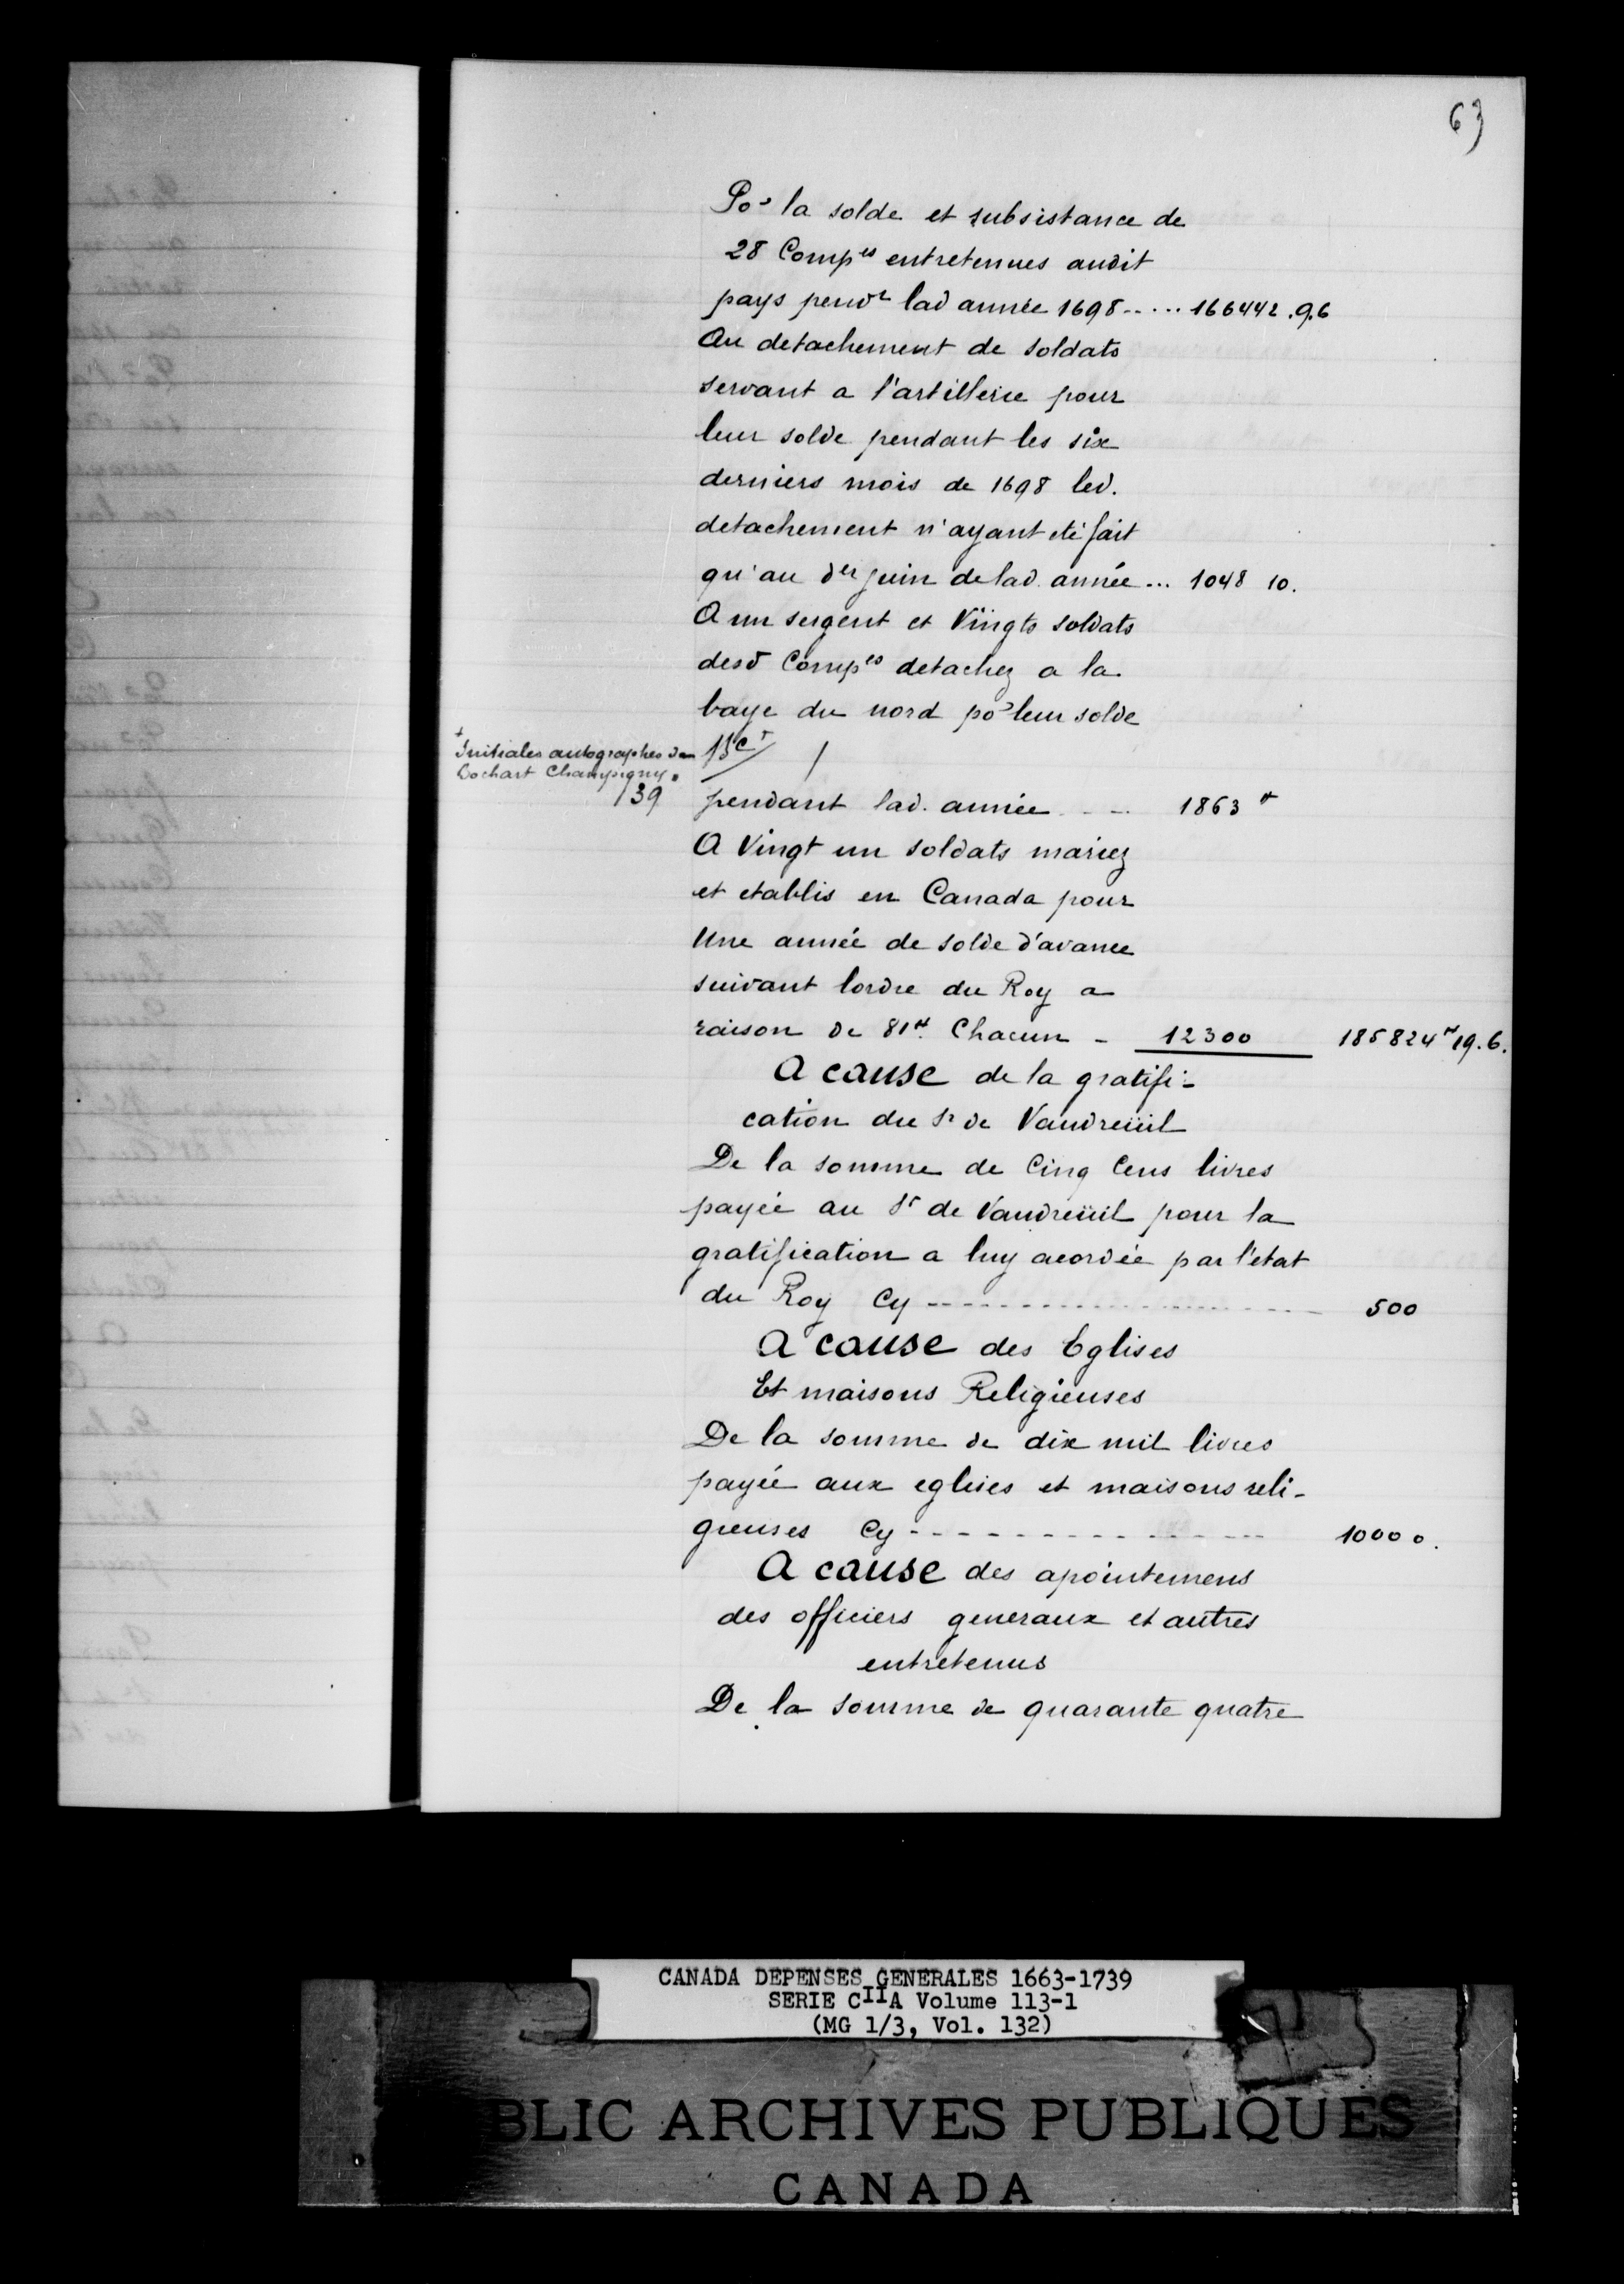 63
Por la solde et subsistance de
28 Compes entretenues audit
pays pendt lad année 1698 ..... 166442.9.6
Au detachement de soldats
servant a l'artillerie pour
leur solde pendant les six
derniers mois de 1698 led.
detachement n'ayant eté fait
qu'au der juin de lad. année ... 1048 10.
A un sergent et Vingts soldats
desd Compes detachez a la
baye du nord por leur solde
+
Initiales autographes de
Bochart Champigny.
BC+ /
139
pendant lad. année - - - 1863 #
A Vingt un soldats mariez
et etablis en Canada pour
Une année de solde d'avance
suivant lordre du Roy a
raison de 81# Chacun - 12300 185824# 19.6.
A cause de la gratifi-
cation du Sr de Vaudreüil
De la somme de Cinq Cens livres
payée au Sr de Vaudreüil pour la
gratification a luy acordée par l'etat
du Roy Cy ---------- 500
A cause des Eglises
Et maisons Religieuses
De la somme de dix mil livres
payée aux eglises et maisons reli-
gieuses Cy ---------- 10000.
A cause des apointemens
des officiers generaux et autres
entretenus
De la somme de quarante quatre
CANADA DEPENSES GENERALES 1663-1739
SERIE CIIA Volume 113-1
(MG 1/3, Vol. 132)
BLIC ARCHIVES PUBLIQUES
CANADA